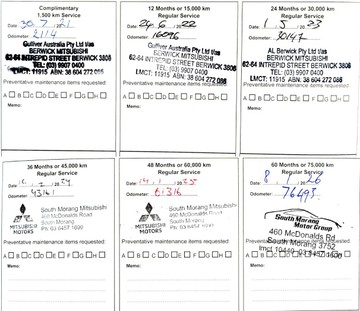 Complimentary
1,500 km Service
Date: 30.7.21
Odometer: 2114
Gulliver Australia Pty Ltd t/as
BERWICK MITSUBISHI
62-64 INTREPID STREET BERWICK 3806
TEL: (03) 9907 0400
LMCT: 11915 ABN: 38 604 272 086
Preventative maintenance items requested:
A B C D E F G H
Memo:
12 Months or 15,000 km
Regular Service
Date: 24.6.2022
Odometer: 16096
Gulliver Australia Pty Ltd t/as
BERWICK MITSUBISHI
62-64 INTREPID STREET BERWICK 3806
TEL: (03) 9907 0400
LMCT: 11915 ABN: 38 604 272 086
Preventative maintenance items requested:
A B C D E F G H
Memo:
24 Months or 30,000 km
Regular Service
Date: 1.5.2023
Odometer: 30147
AL Berwick Pty Ltd t/as
BERWICK MITSUBISHI
62-64 INTREPID STREET BERWICK 3806
TEL: (03) 9907 0400
LMCT: 11915 ABN: 38 604 272 086
Preventative maintenance items requested:
A B C D E F G H
Memo:
36 Months or 45,000 km
Regular Service
Date:
Odometer:
MITSUBISHI
MOTORS
South Morang Mitsubishi
460 McDonalds Road
South Morang
Ph 03 8457 1600
Preventative maintenance items requested:
A B C D E F G H
Memo:
48 Months or 60,000 km
Regular Service
Date:
Odometer:
MITSUBISHI
MOTORS
South Morang Mitsubishi
460 McDonalds Road
South Morang
Preventative maintenance items requested:
A B C D E F G H
Memo:
60 Months or 75,000 km
Regular Service
Date:
Odometer:
South Morang
Motor Group
460 McDonalds Rd
South Morang 3752
Preventative maintenance items requested:
A B C D E F G H
Memo: